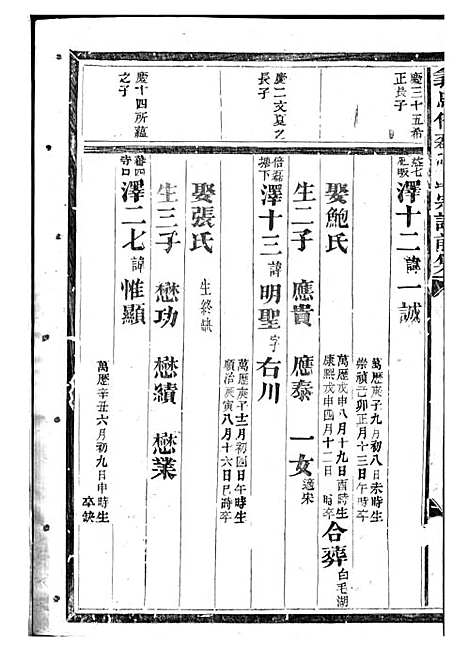 慶三十五希
正長子
澤十二諱一誠
萬歷庚子九月初八日未時生
崇禎己卯正月十三日午時卒
娶鮑氏
萬歷戊申八月十九日酉時生
康熙戊申四月十二日 時卒
合葬白毛湖
生二子 應貴 應泰 一女適宋
慶二文夏之
長子
倍磊
塘下
澤十三諱明聖字右川
萬歷庚子十二月初四日午時生
順治庚寅八月十六日巳時卒
娶張氏 生終缺
生三子 懋功 懋績 懋業
慶十四所蘊
之子
寺口
澤二七諱惟顯
萬歷辛丑六月初九日申時生
卒缺